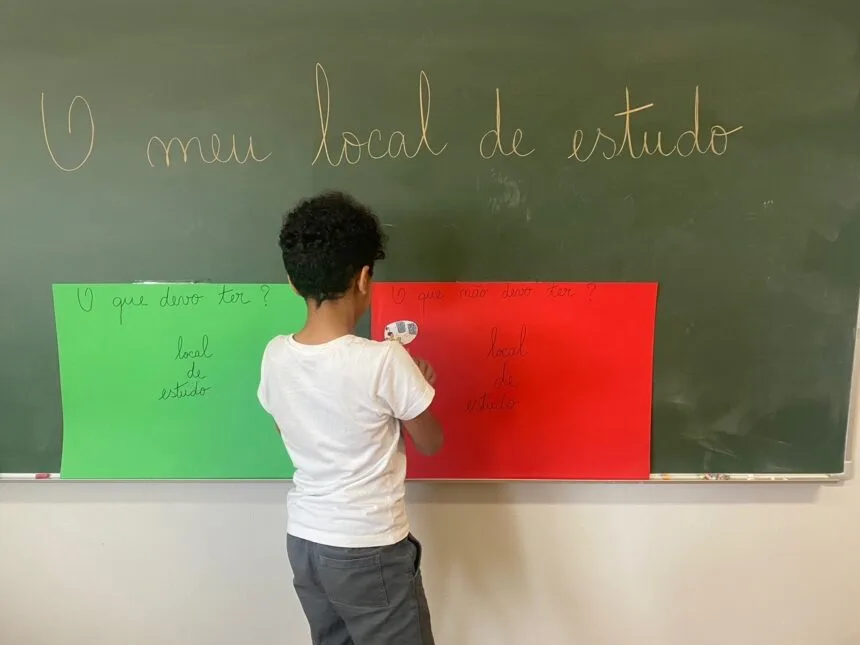 O meu local de estudo
O que devo ter?
local
de
estudo
O que não devo ter?
local
de
estudo